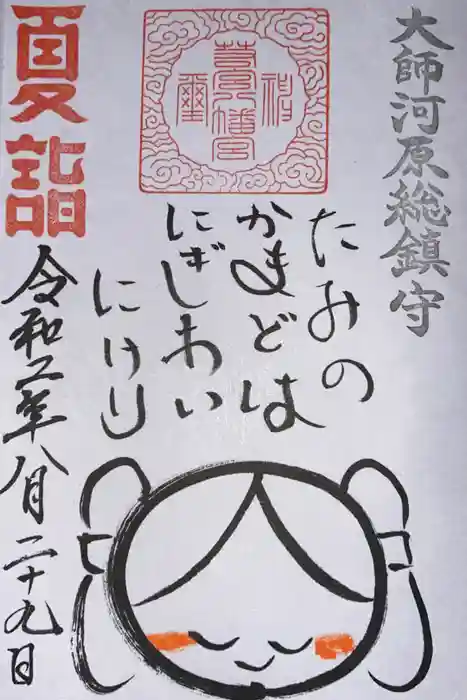 大師河原総鎮守
たみの
かまどは
にぎしわい
にけり
夏詣
令和二年八月二十九日